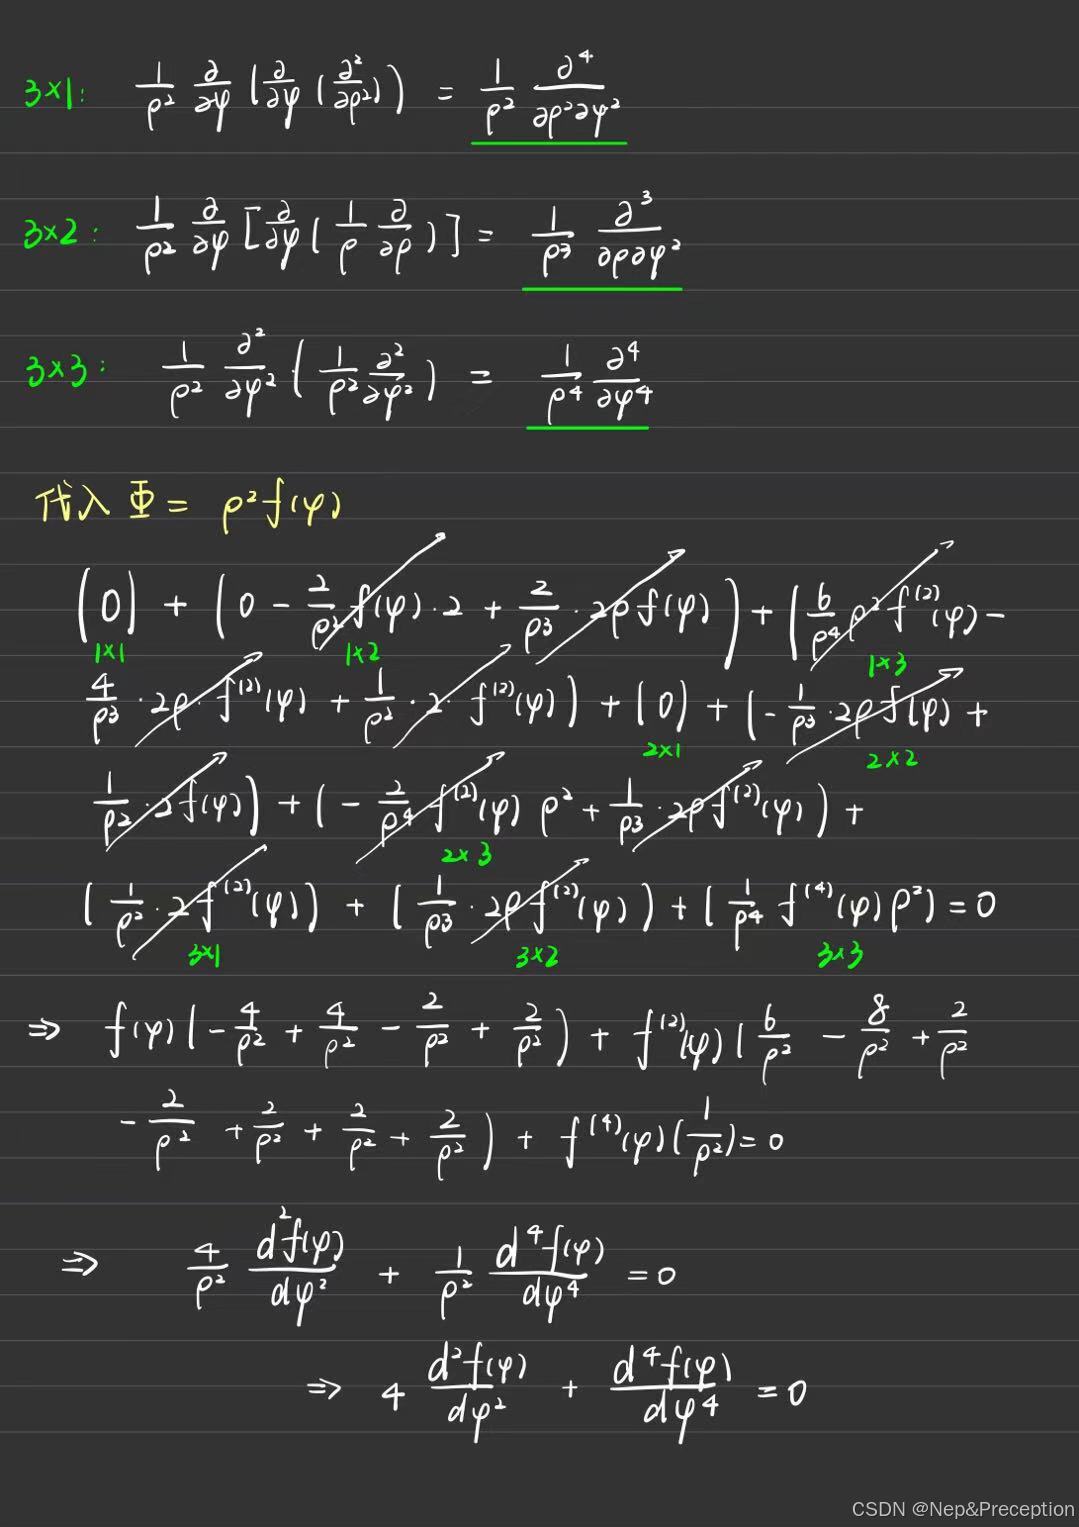 3×1: 1/ρ² ∂/∂φ (∂/∂φ (∂²/∂ρ²)) = 1/ρ² ∂⁴/∂ρ²∂φ²
3×2: 1/ρ² ∂/∂φ [∂/∂φ (1/ρ ∂/∂ρ)] = 1/ρ³ ∂³/∂ρ∂φ²
3×3: 1/ρ² ∂²/∂φ² (1/ρ² ∂²/∂φ²) = 1/ρ⁴ ∂⁴/∂φ⁴
代入 Φ = ρ²f(φ)
(0) + (0 - 2/ρ² f(φ)·2 + 2/ρ³ · 2ρ f(φ)) + (6/ρ⁴ ρ² f⁽²⁾(φ) -
1×1 1×2 1×3
4/ρ³ · 2ρ · f⁽²⁾(φ) + 1/ρ² · 2 · f⁽²⁾(φ)) + (0) + (- 1/ρ³ · 2ρ f(φ) +
2×1 2×2
1/ρ² · 2f(φ)) + (- 2/ρ⁴ f⁽²⁾(φ) ρ² + 1/ρ³ · 2ρ f⁽²⁾(φ)) +
2×3
(1/ρ² · 2f⁽²⁾(φ)) + (1/ρ³ · 2ρ f⁽²⁾(φ)) + (1/ρ⁴ f⁽⁴⁾(φ) ρ²) = 0
3×1 3×2 3×3
⇒ f(φ) (- 4/ρ² + 4/ρ² - 2/ρ² + 2/ρ²) + f⁽²⁾(φ) (6/ρ² - 8/ρ² + 2/ρ²
- 2/ρ² + 2/ρ² + 2/ρ² + 2/ρ²) + f⁽⁴⁾(φ) (1/ρ²) = 0
⇒ 4/ρ² d²f(φ)/dφ² + 1/ρ² d⁴f(φ)/dφ⁴ = 0
⇒ 4 d²f(φ)/dφ² + d⁴f(φ)/dφ⁴ = 0
CSDN @Nep&Preception